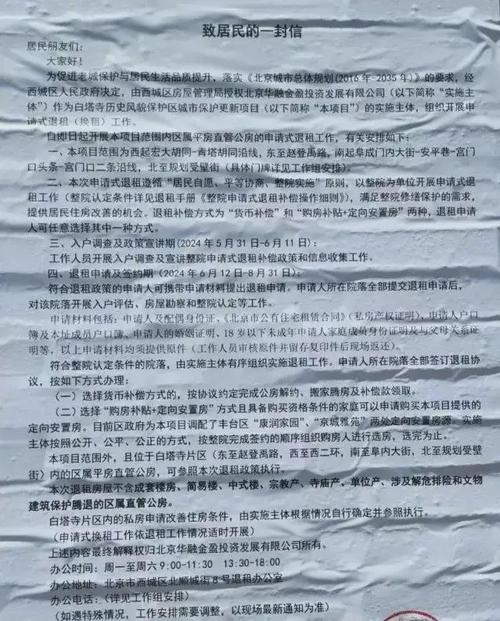 致居民的一封信
居民朋友们:
大家好!
为促进老城保护与居民生活品质提升，落实《北京城市总体规划(2016 年-2035 年)》的要求，经
西城区人民政府决定，由西城区房屋管理局授权北京华融金盈投资发展有限公司（以下简称“实施主
体”）作为白塔寺历史风貌保护区城市保护更新项目（以下简称“本项目”）的实施主体，组织开展申
请式退租（换租）工作。
自即日起开展本项目范围内区属平房直管公房的申请式退租工作，有关安排如下：
一、本项目范围为西起宏大胡同-青塔胡同沿线，东至赵登禹路，南起阜成门内大街-安平巷-宫门
口头条-宫门口二条沿线，北至规划受壁街（具体门牌详见工作组安排）。
二、本次申请式退租遵循“居民自愿、平等协商、整院实施”原则，以整院为单位开展申请式退
租工作（整院认定条件详见退租手册《整院申请式退租补偿操作细则》），满足整院修缮保护的需求，
提供居民住房改善的机会。退租补偿方式为“货币补偿”和“购房补贴+定向安置房”两种，退租申请
人可任意选择其中一种方式。
三、入户调查及政策宣讲期(2024 年 5 月 31 日-6 月 11 日)：
工作人员开展入户调查及宣讲整院申请式退租补偿政策和信息收集工作。
四、退租申请及签约期(2024 年 6 月 12 日-8 月 31 日)：
符合退租政策的申请人可携带申请材料提出退租申请。申请人所在院落全部提交退租申请后，
对该院落开展入户评估、房屋勘察和整院认定等工作。
申请材料包括：申请人及配偶身份证、《北京市公有住宅租赁合同》《私房产权证明》、申请人户口
簿及本址成员户口簿、申请人的婚姻证明、18 岁以下未成年申请人家庭成员身份证明及与父母关系证
明等，以上申请材料均须提供原件（工作人员审核原件并留存复印件后现场返还）。
符合整院认定条件的院落，由实施主体有序组织实施退租工作。申请人所在院落全部签订退租协
议，按如下方式办理：
（一）选择货币补偿方式的，按协议约定完成公房解约、搬家腾房及补偿款领取。
（二）选择“购房补贴+定向安置房”方式且具备购买资格条件的家庭可以申请购买本项目提供的
定向安置房。目前区政府为本项目调配了丰台区“康润家园”、“京城雅苑”两处定向安置房源。实施
主体按照公开、公平、公正的方式，按整院完成签约的顺序组织购房人进行选房，选完为止。
本项目范围外，且位于白塔寺片区（东至赵登禹路，西至西二环，南至阜内大街，北至规划受壁
街)内的区属平房直管公房，可参照本次退租政策执行。
本次退租房屋不含成套楼房、简易楼、中式楼、宗教产、寺庙产、单位产、涉及解危排险和文物
建筑保护腾退的区属直管公房。
白塔寺片区内的私房申请改善住房条件，由实施主体根据情况自行确定并参照执行。
（申请式换租工作依退租工作情况适时开展）
上述内容最终解释权归北京华融金盈投资发展有限公司所有。
办公时间：周一至周六 9:00-11:30 13:30-18:00
办公地址：北京市西城区北顺城街 8 号退租办公室
办公电话：（详见工作组安排）
（如遇特殊情况，工作安排需要调整，以现场最新通知为准）